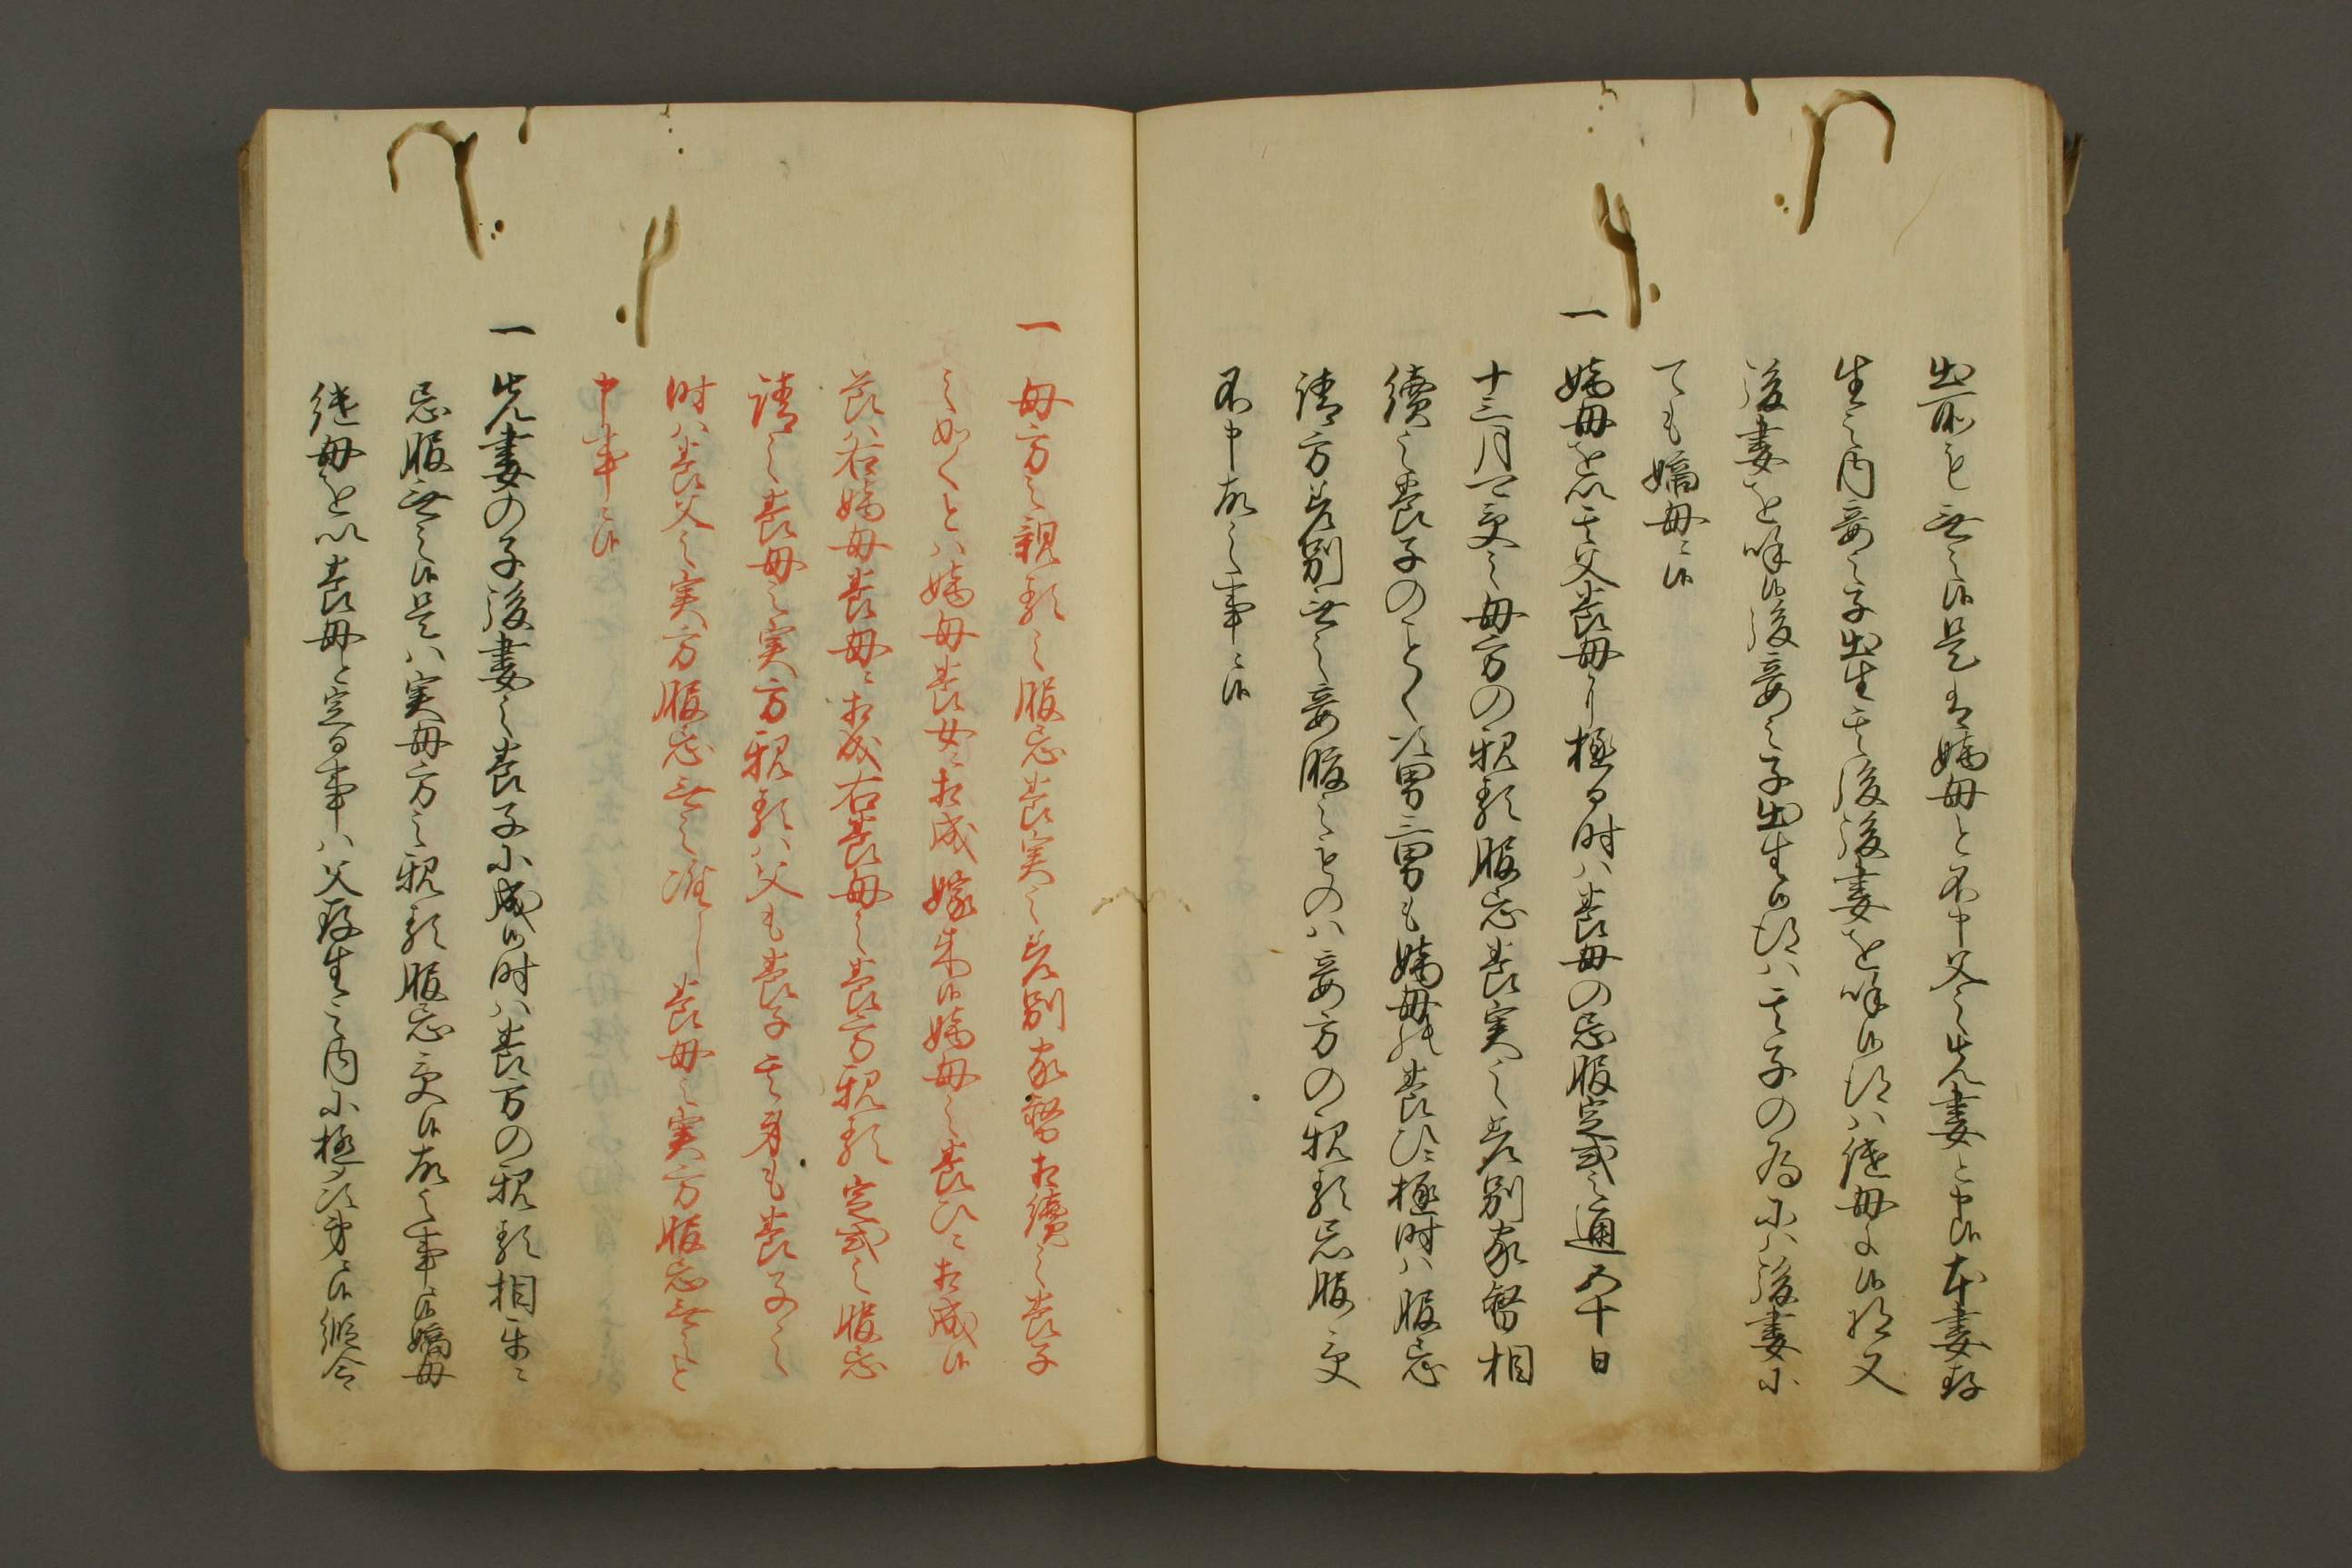 出所も無之候是を嫡母と不申父之先妻と申候本妻存
生之内妾之子出生其後後妻を呼候得ハ継母ニ候得共又
後妻を呼候後妾之子出生候得ハ其子の為ニハ後妻ニ
ても嫡母ニ候
一嫡母を以其父養母ニ極る時ハ養母の忌服定式之通五十日
十三月可受之母方の親類服忌養実之差別家督相
續之養子のことく次男三男も嫡母の養ひニ極時ハ服忌
請方差別無之妾腹之ものハ妾方の親類忌服受
不申故之事ニ候
一母方之親類之服忌養実之差別家督相續之養子
之如くとハ嫡母養女ニ相成嫁来候嫡母之養ひニ相成候
義ハ右嫡母養母ニ相成右養母之養方親類定式之服忌
請之養母之実方親類ハ父も養子其身も養子之
時ハ養父之実方服忌無之准し養母之実方服忌無之と
申事ニ候
一先妻の子後妻之養子ニ成候時ハ養方の親類相当ニ
忌服無之候是ハ実母方之親類服忌受候故之事ニ候嫡母
継母を以養母と定る事ハ父存生之内ニ極次第ニ候縦令